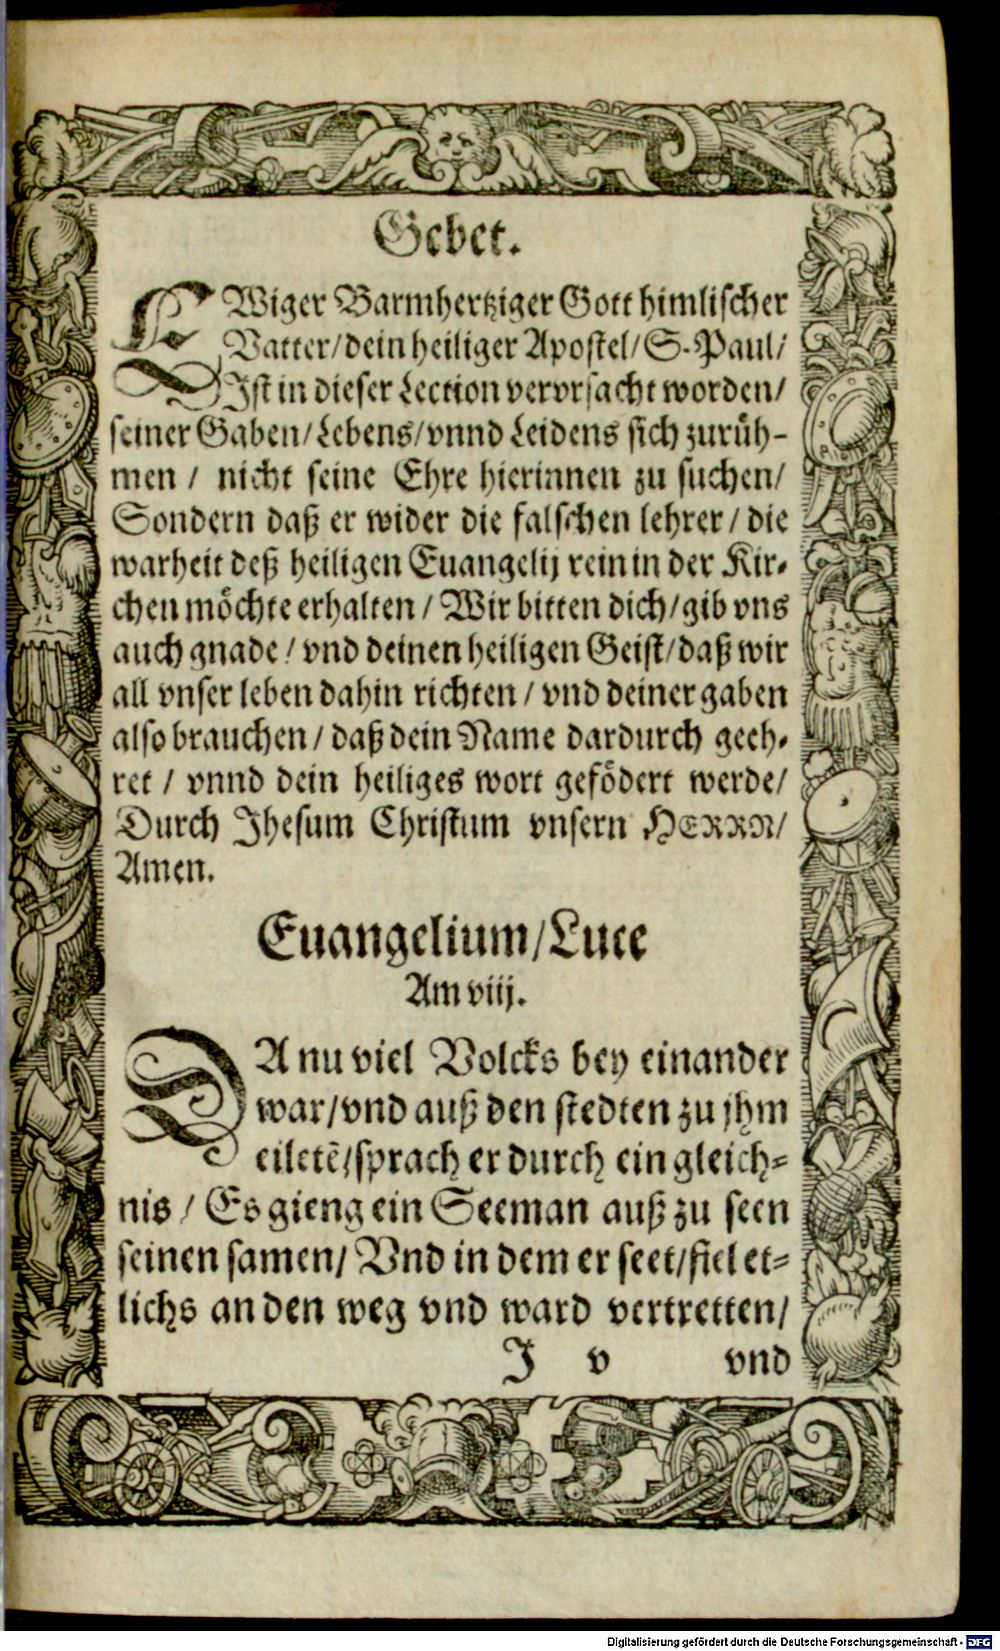 Gebet.
EWiger Barmhertziger Gott himlischer
Vatter/dein heiliger Apostel/S. Paul/
Ist in dieser Lection vervrsacht worden/
seiner Gaben/Lebens/vnnd Leidens sich zurüh-
men / nicht seine Ehre hierinnen zu suchen/
Sondern daß er wider die falschen lehrer / die
warheit deß heiligen Euangelij rein in der Kir-
chen möchte erhalten / Wir bitten dich/gib vns
auch gnade / vnd deinen heiligen Geist/daß wir
all vnser leben dahin richten / vnd deiner gaben
also brauchen / daß dein Name dardurch geeh-
ret / vnnd dein heiliges wort gefödert werde/
Durch Jhesum Christum vnsern HERRN/
Amen.
Euangelium/Luce
Am viij.
DA nu viel Volcks bey einander
war/vnd auß den stedten zu jhm
eiletẽ/sprach er durch ein gleich-
nis / Es gieng ein Seeman auß zu seen
seinen samen/ Vnd in dem er seet/fiel et-
lichs an den weg vnd ward vertretten/
J v vnd
Digitalisierung gefördert durch die Deutsche Forschungsgemeinschaft - DFG